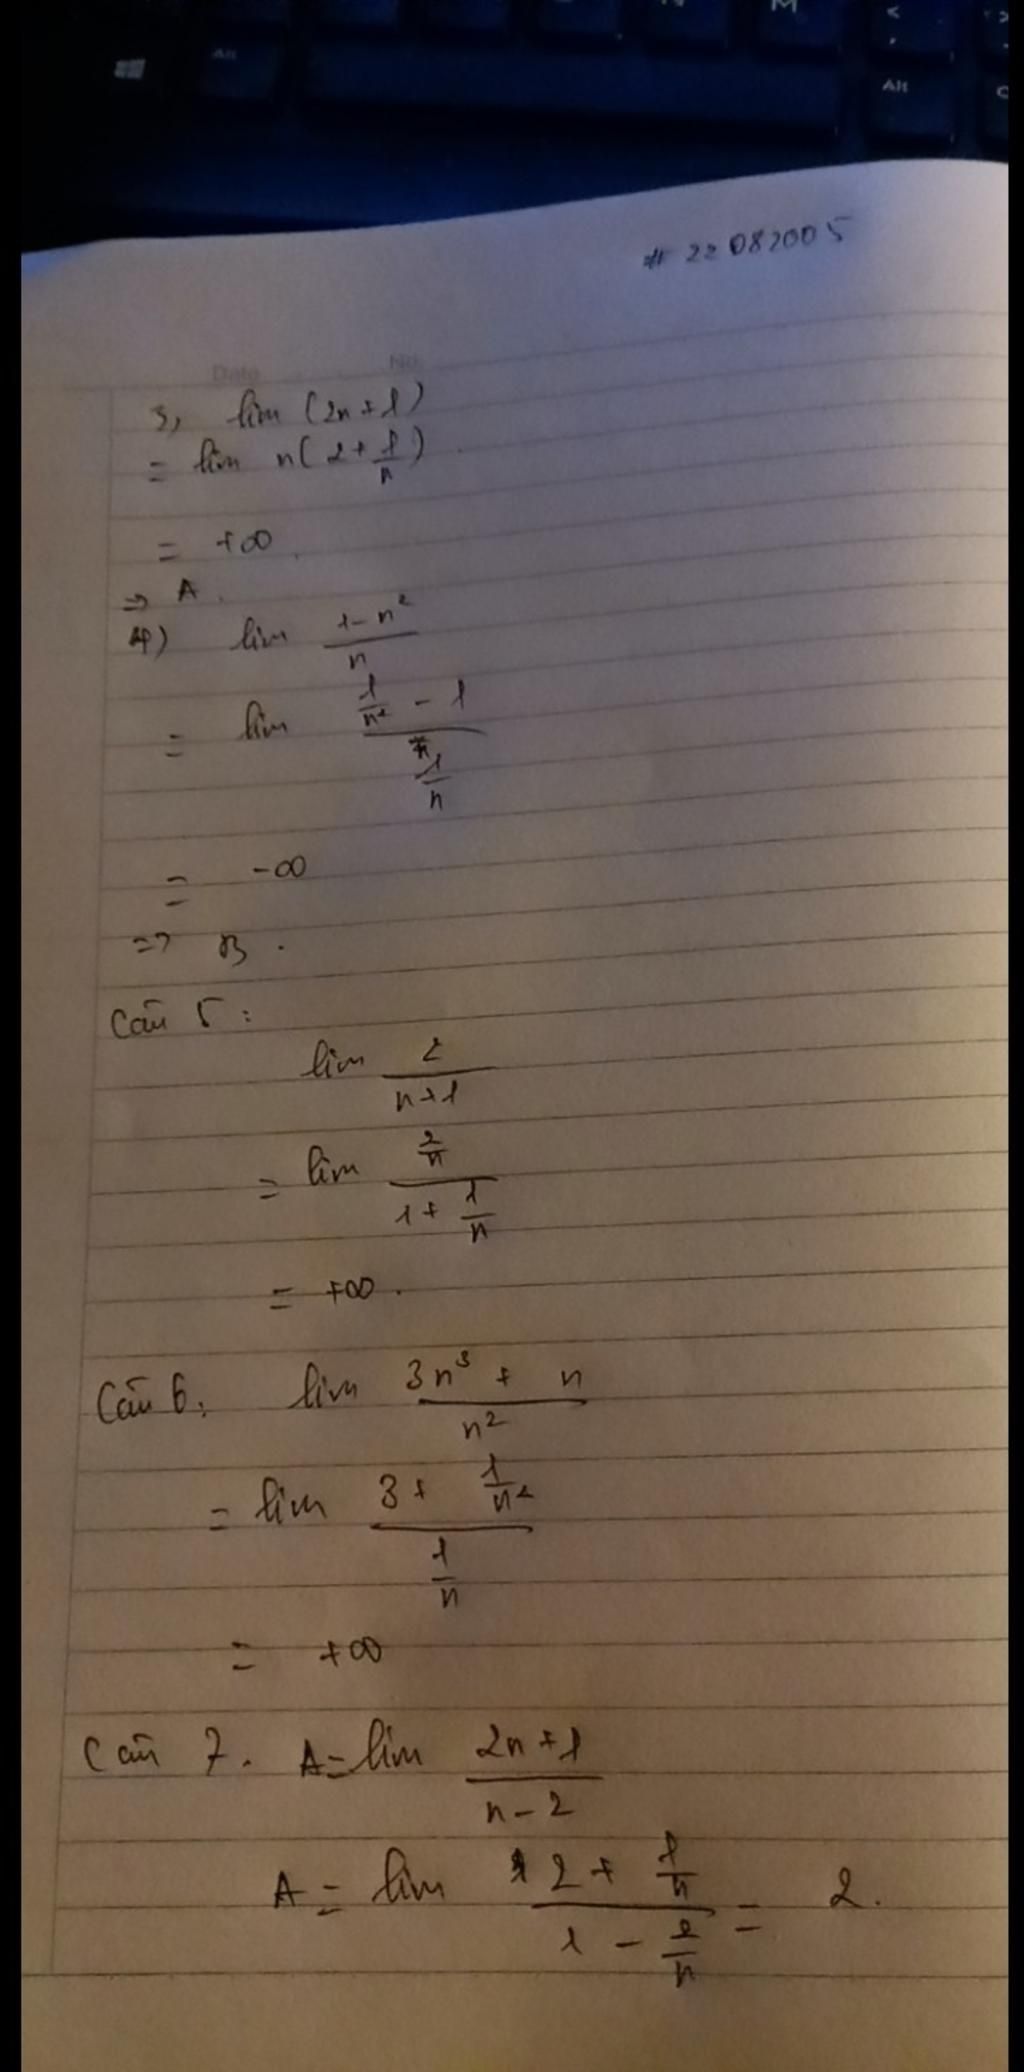 M
<
,
>
Alt
Alt
C
# 22082005
Date
No.
3, lim (2n + 1)
= lim n(2 + 1/n)
= +∞.
⇒ A.
4) lim (1 - n²)/n
= lim (1/n² - 1)/(1/n)
= -∞
=> B.
Câu 5:
lim 2/(n+1)
= lim (2/n)/(1 + 1/n)
= +∞.
Câu 6, lim (3n³ + n)/n²
= lim (3 + 1/n²)/(1/n)
= +∞
Câu 7. A = lim (2n + 1)/(n - 2)
A = lim (2 + 1/n)/(1 - 2/n) = 2.